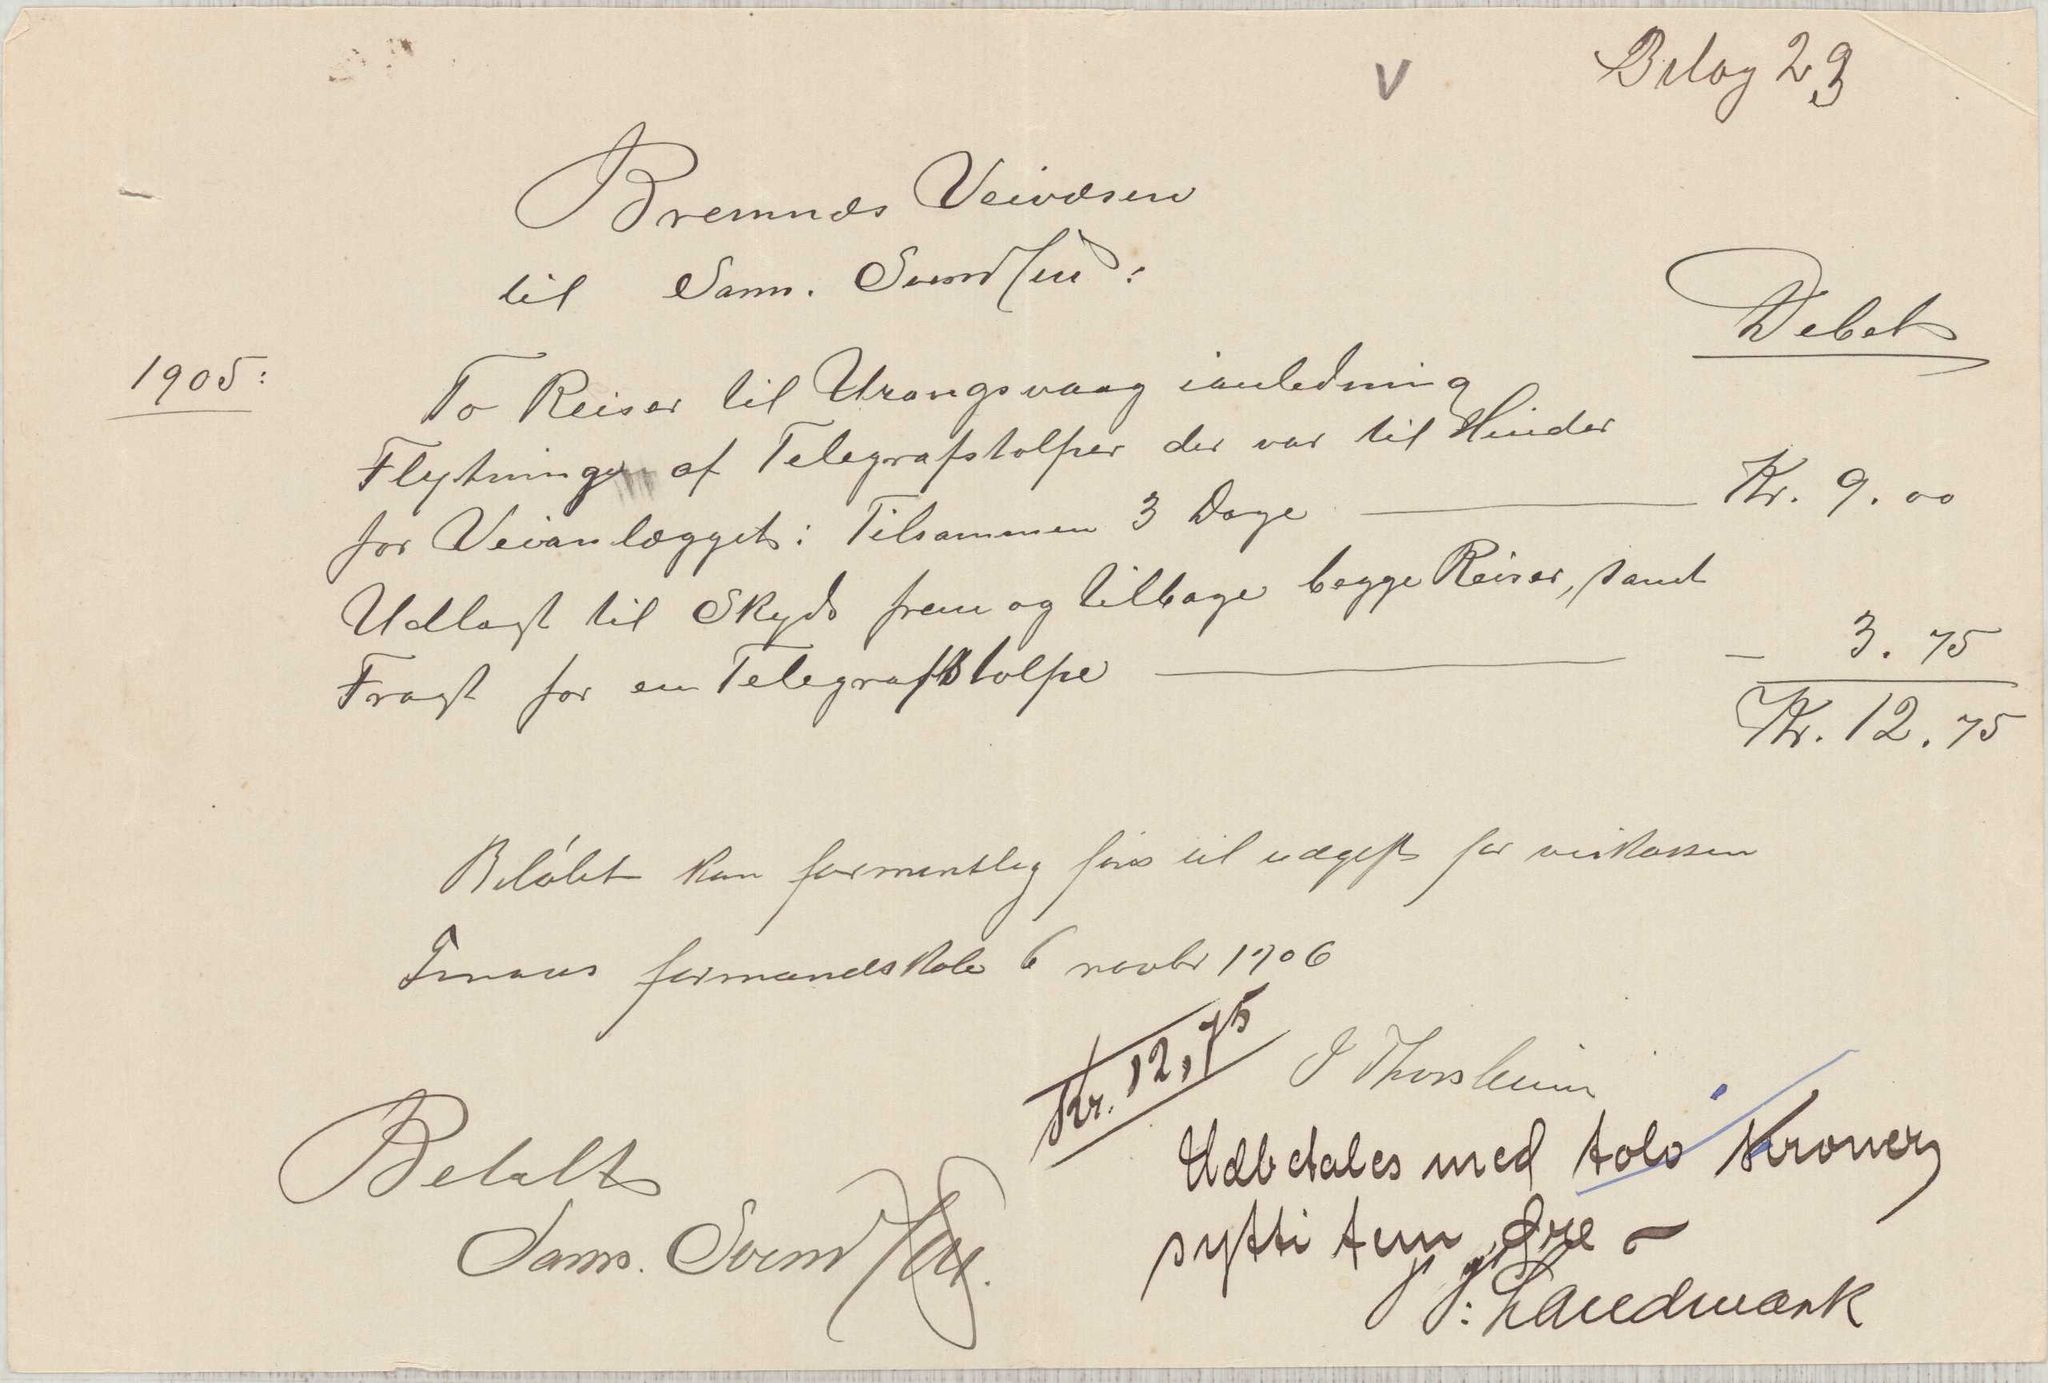 V
Bilag 23
Bremnæs Veivæsen
til Sam. Svendsen:
Debet
1905:
To Reiser til Urangsvaag ianledning
Flytning af Telegrafstolper der var til Hinder
for Veianlægget: Tilsammen 3 Dage — Kr. 9.00
Udlagt til Skyds frem og tilbage begge Reiser, samt
Fragt for en Telegrafstolpe — - 3.75
Kr. 12.75
Beløbet kan formentlig føres til udgift for veikassen
Finaas formandskab 6 novbr 1906
Kr. 12,75
J Thorsheim
Udbetales med tolv Kroner
sytti fem Øre -
Landmark
Betalt
Sam. Svendsen.